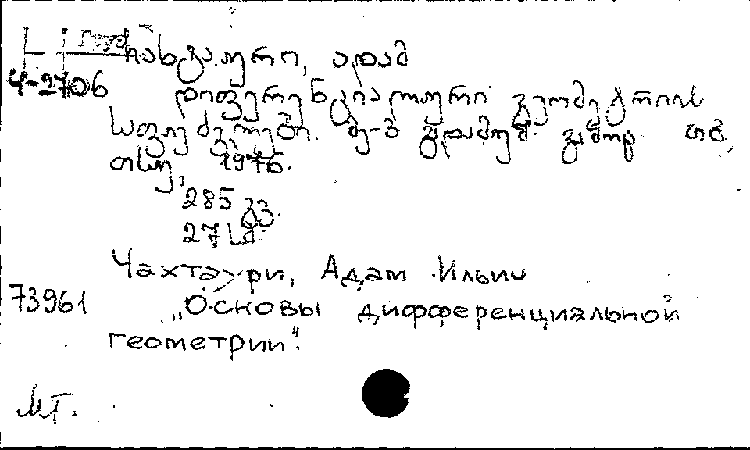 ჩახტაური, ადამ
Ч-2706
დიფერენციალური გეომეტრიის
საფუძვლები. მე-3 გადამუშ. გამოც. თბ.,
თსუ, 1976.
285 გვ.
27 სმ.
Чахтаури, Адам Ильич
73961 „Основы дифференциальной
геометрии".
МТ.